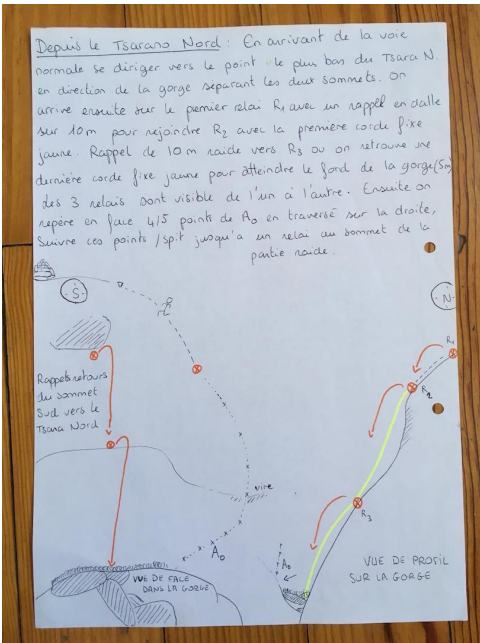 Depuis le Tsarano Nord : En arrivant de la voie
normale se diriger vers le point le plus bas du Tsara N.
en direction de la gorge séparant les deux sommets. On
arrive ensuite sur le premier relai R1 avec un rappel en dalle
sur 10m pour rejoindre R2 avec la première corde fixe
jaune. Rappel de 10m raide vers R3 ou on retrouve une
dernière corde fixe jaune pour atteindre le fond de la gorge (5m)
des 3 relais sont visible de l'un à l'autre. Ensuite on
repère en face 4/5 points de A0 en traversé sur la droite,
Suivre ces points / spit jusqu'a un relai au sommet de la
partie raide.
S
N
R1
R2
Rappels retours
du sommet
Sud vers le
Tsara Nord
vire
R3
A0
A0
VUE DE FACE
DANS LA GORGE
VUE DE PROFIL
SUR LA GORGE